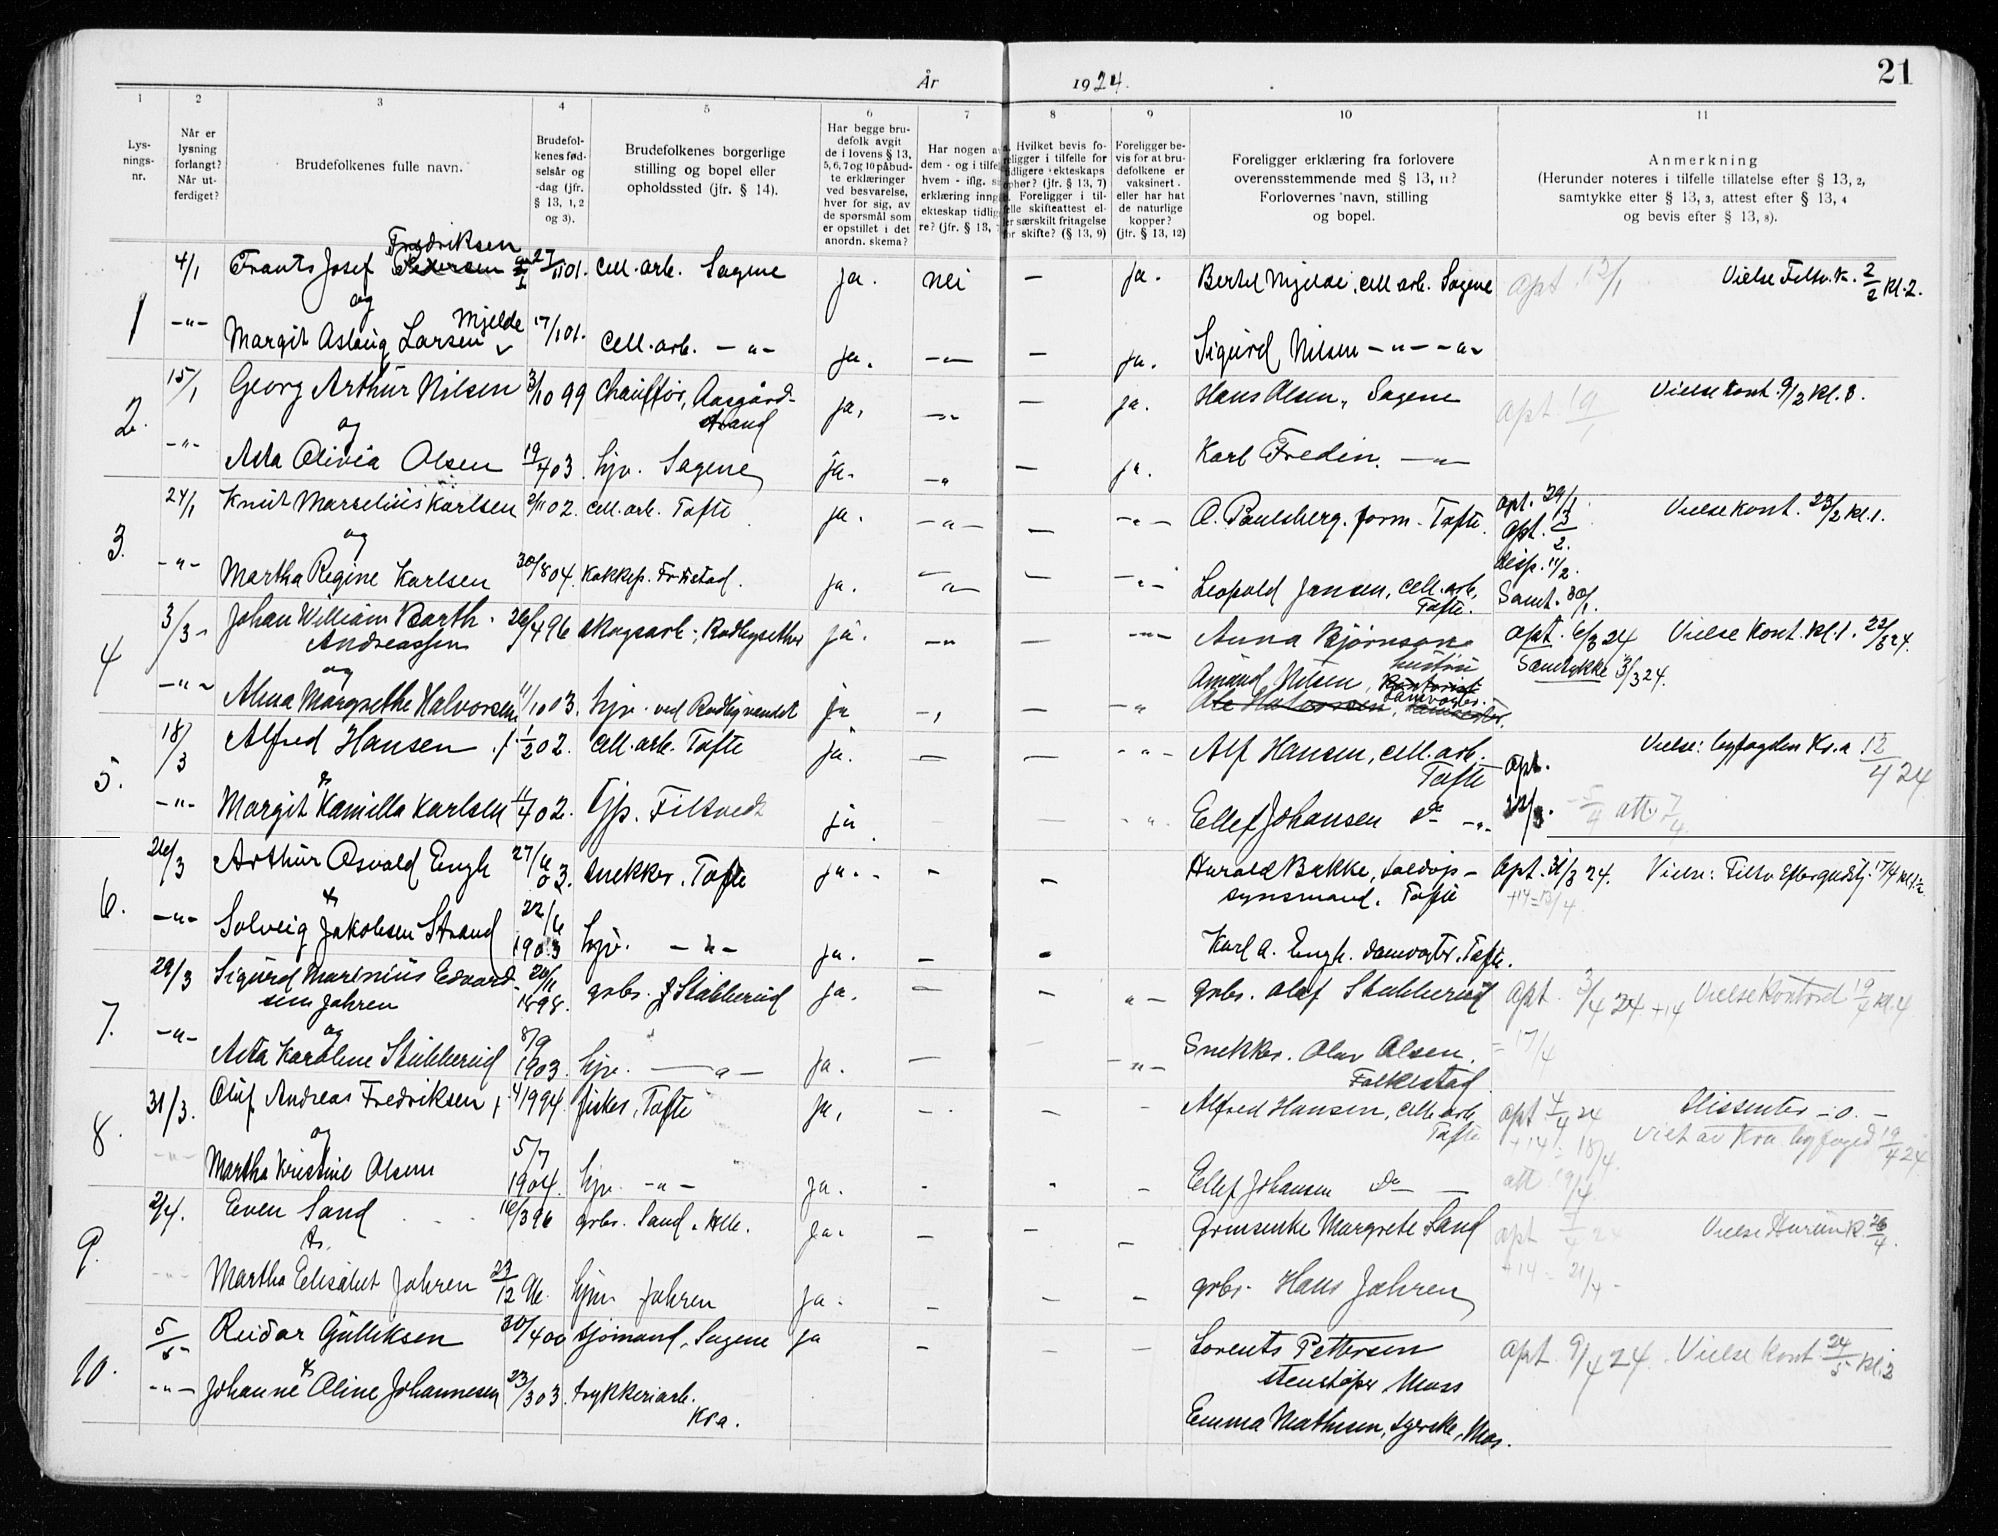 År 1924. 21
1 2 3 4 5 6 7 8 9 10 11
Lys-
nings-
nr.
Når er
lysning
forlangt?
Når ut-
ferdiget?
Brudefolkenes fulle navn.
Brudefol-
kenes fød-
selsår og
-dag (jfr.
§ 13, 1, 2
og 3).
Brudefolkenes borgerlige
stilling og bopel eller
opholdssted (jfr. § 14).
Har begge bru-
defolk avgit
de i lovens § 13,
5, 6, 7 og 10 påbud-
te erklæringer
ved besvarelse,
hver for sig, av
de spørsmål som
er opstillet i det
anordn. skema?
Har nogen a
dem - og i tilfe
hvem - iflg. s
erklæring inng
ekteskap tidlig
re? (jfr. § 13,
Hvilket bevis fo-
religger i tilfelle for
tidligere ekteskaps
ophør? (jfr. § 13, 7)
Foreligger i til-
felle skifteattest el-
ler særskilt fritagelse
for skifte? (§ 13, 9)
Foreligger be-
vis for at bru-
defolkene er
vaksinert -
eller har hat
de naturlige
kopper?
(jfr. § 13, 12)
Foreligger erklæring fra forlovere
overensstemmende med § 13, 11?
Forlovernes navn, stilling
og bopel.
Anmerkning
(Herunder noteres i tilfelle tillatelse efter § 13, 2,
samtykke efter § 13, 3, attest efter § 13, 4
og bevis efter § 13, 8).
Fredriksen
1 4/1 Frants Josef Pedersen 27/11 01. cell. arb. Sagene ja. nei — ja. Bertel Mjelde, cell arb. Sagene apt. 13/1 Vielse Filtv. K. 2/2 kl. 2.
og
Mjelde
-"- Margit Aslaug Larsen 17/1 01. cell. arb. -"- ja. -"- — ja. Sigurd Nilsen -"- -"-
2. 15/1 Georg Arthur Nilsen 3/10 99 chauffør, Aasgård-
strand ja. -"- — ja. Hans Olsen, Sagene apt. 19/1 Vielse kont. 9/2 kl. 3.
og
-"- Asta Olivia Olsen 19/4 03. hjv. Sagene ja. -"- — ja. Karl Fredin. -"-
3. 24/1 Knut Marselius Karlsen 2/11 02. cell. arb. Tofte ja. -"- — -"- O. Paulsberg. form. Tofte. apt. 29/1.
apt. 3/2. Vielse kont. 23/2 kl. 1.
og
disp. 11/2.
-"- Martha Regine Karlsen 30/8 04. kokkep. Fr.stad. ja. -"- — -"- Leopold Jansen, cell. arb.
Tofte. Samt. 30/1.
4 3/3 - Johan William Barth -
Andreassen 26/4 96 skogsarb., Rødbysether ja. -"- — -"- Anna Bjørnson
hustru apt. 6/3 24 Vielse kont. kl. 1. 22/3 24.
Samtykke 3/3 24.
og
-"- Alma Margrethe Halvorsen 11/10 03. hjv. ved Rødbyvandet ja -"- -"- Amund Nilsen, Kontorist
damvogter.
Ole Halvorsen, damvogter.
5. 18/3 Alfred Hansen 1/2 02. cell. arb. Tofte ja. — — -"- Alf Hansen, cell. arb.
Tofte apt.
22/3. Vielse: byfogden Kr.a 12/4 24
&
-"- Margit Kamilla Karlsen 11/7 02. tjp. Filtvedt ja — -"- Ellef Johansen do -"- 5/4 att. 7/4.
6. 26/3 Arthur Osvald Engh 27/6
03. snekker. Tofte ja. - — Harald Bakke, toldop-
synsmand. Tofte Apt. 31/3 24. Vielse: Filtv Eftergudstj. 17/4 kl. 1½
+14=13/4
&
-"- Solveig Jakobsen Strand 22/6
1903 hjv. -"- ja. — - Karl A. Engh. damvogter. Tofte.
7. 29/3 Sigurd Marinius Edvard-
sen Jahren 20/11
1898. gvbr. Stubberud ja. — — "- gvbr. Olaf Stubberud apt. 3/4 24 +14 Vielse Kontord 19/4 kl. 4
= 17/4
og
-"- Asta Karoline Stubberud 8/9
1903. hjv. -"- ja. — — -"- Snekker. Olav Olsen.
Folkestad
8. 31/3. Oluf Andreas Fredriksen 4/1 1994. fisker, Tofte ja. - — - Alfred Hansen, cell. arb.
Tofte apt 4/4 24 Dissenter -o. -
+14 = 18/4. Viet av Kra byfoged 19/4 24
og
-"- Martha Kristine Olsen 5/7
1904. hjv. -"- ja. - - — Ellef Johansen do — att 19/4
9. 2/4. Even Sand 16/3 96 gvbr. Sand, ja. — — — Grmsenke Margrete Sand apt 7/4 24 Vielse Hurum k. 26/4.
+14 = 21/4 -
&.
-"- Martha Elisabet Jahren 29/12 hjm. Jahren ja. — — — gvbr. Hans Jahren
10. 5/5 Reidar Gulliksen 30/4 00 sjømand, Sagene ja — — — Lorents Pettersen
stenstøper Moss apt. 9/4 24. Vielse kont. 24/5 kl. 2
&
-"- Johanne Oline Johannesen 23/3 03. trykkeriarb.
Kra. Emma Mathisen, syerske, Mos.